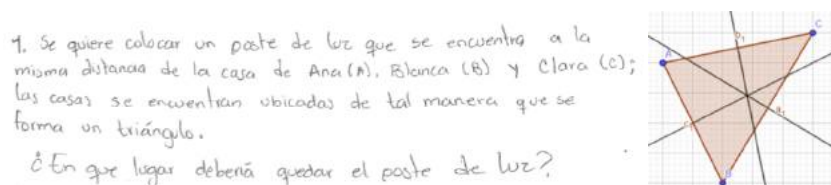 1. Se quiere colocar un poste de luz que se encuentra a la
misma distancia de la casa de Ana (A), Blanca (B) y Clara (C);
las casas se encuentran ubicadas de tal manera que se
forma un triángulo.
¿En que lugar deberá quedar el poste de luz?
A
C
b₁
c₁
a₁
B